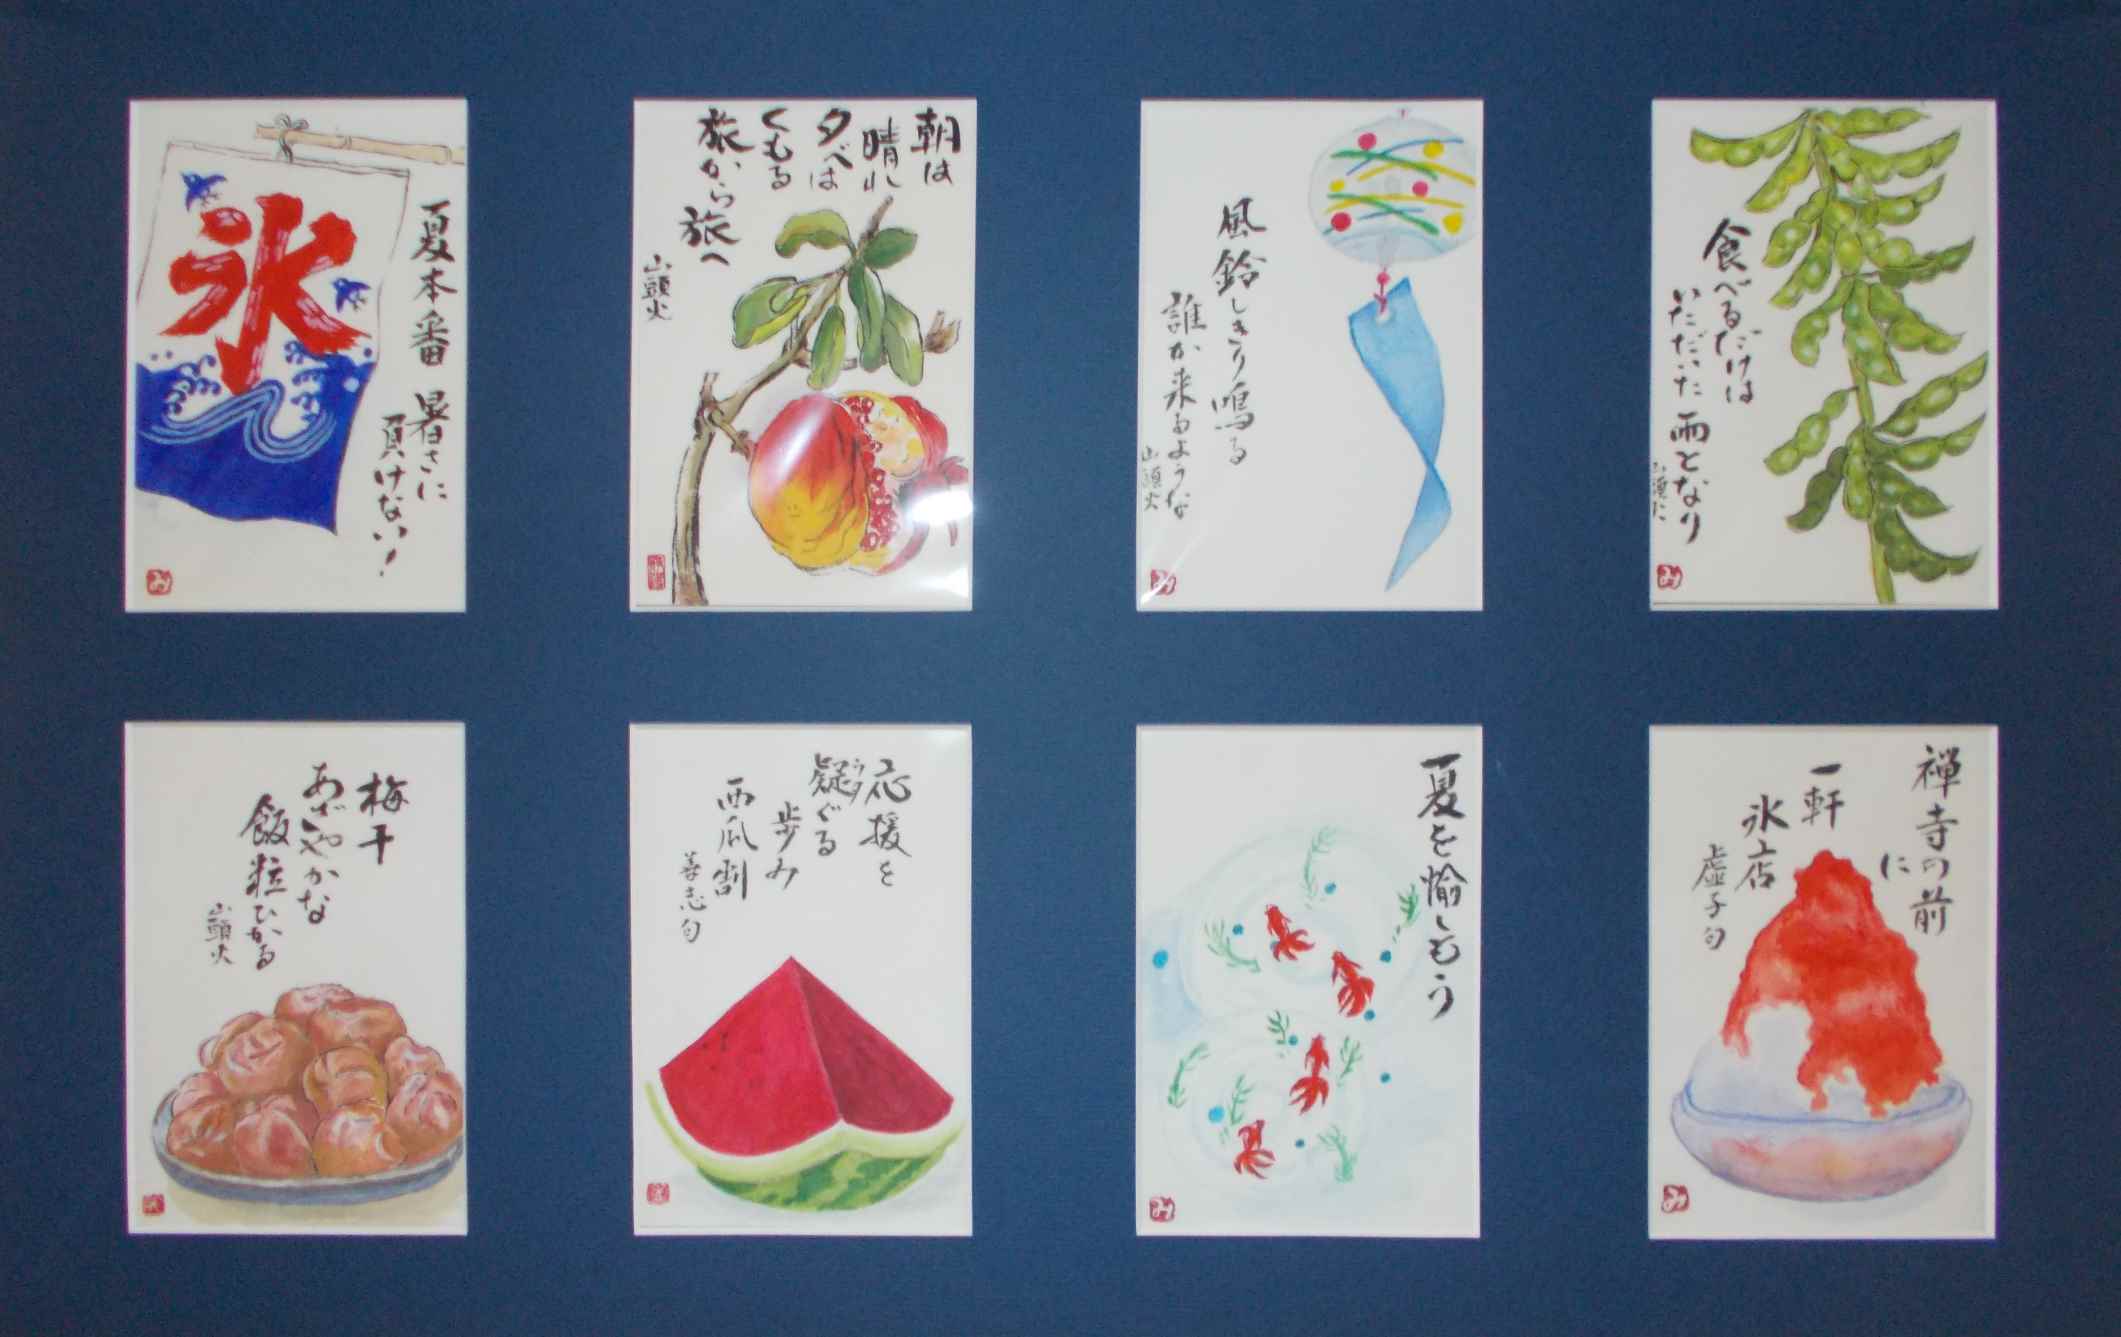 氷
夏本番
暑さに
負けない!
み
朝は
晴れ
夕べは
くもる
旅から
旅へ
山頭火
風鈴しきり鳴る
誰か来るような
山頭火
み
食べるだけは
いただいた雨となり
山頭火
み
梅干
あざやかな
飯粒ひかる
山頭火
応援を
疑ぐる
ウタ
歩み
西瓜割
善志句
夏を愉しもう
み
禅寺の前
に
一軒
氷店
虚子句
み